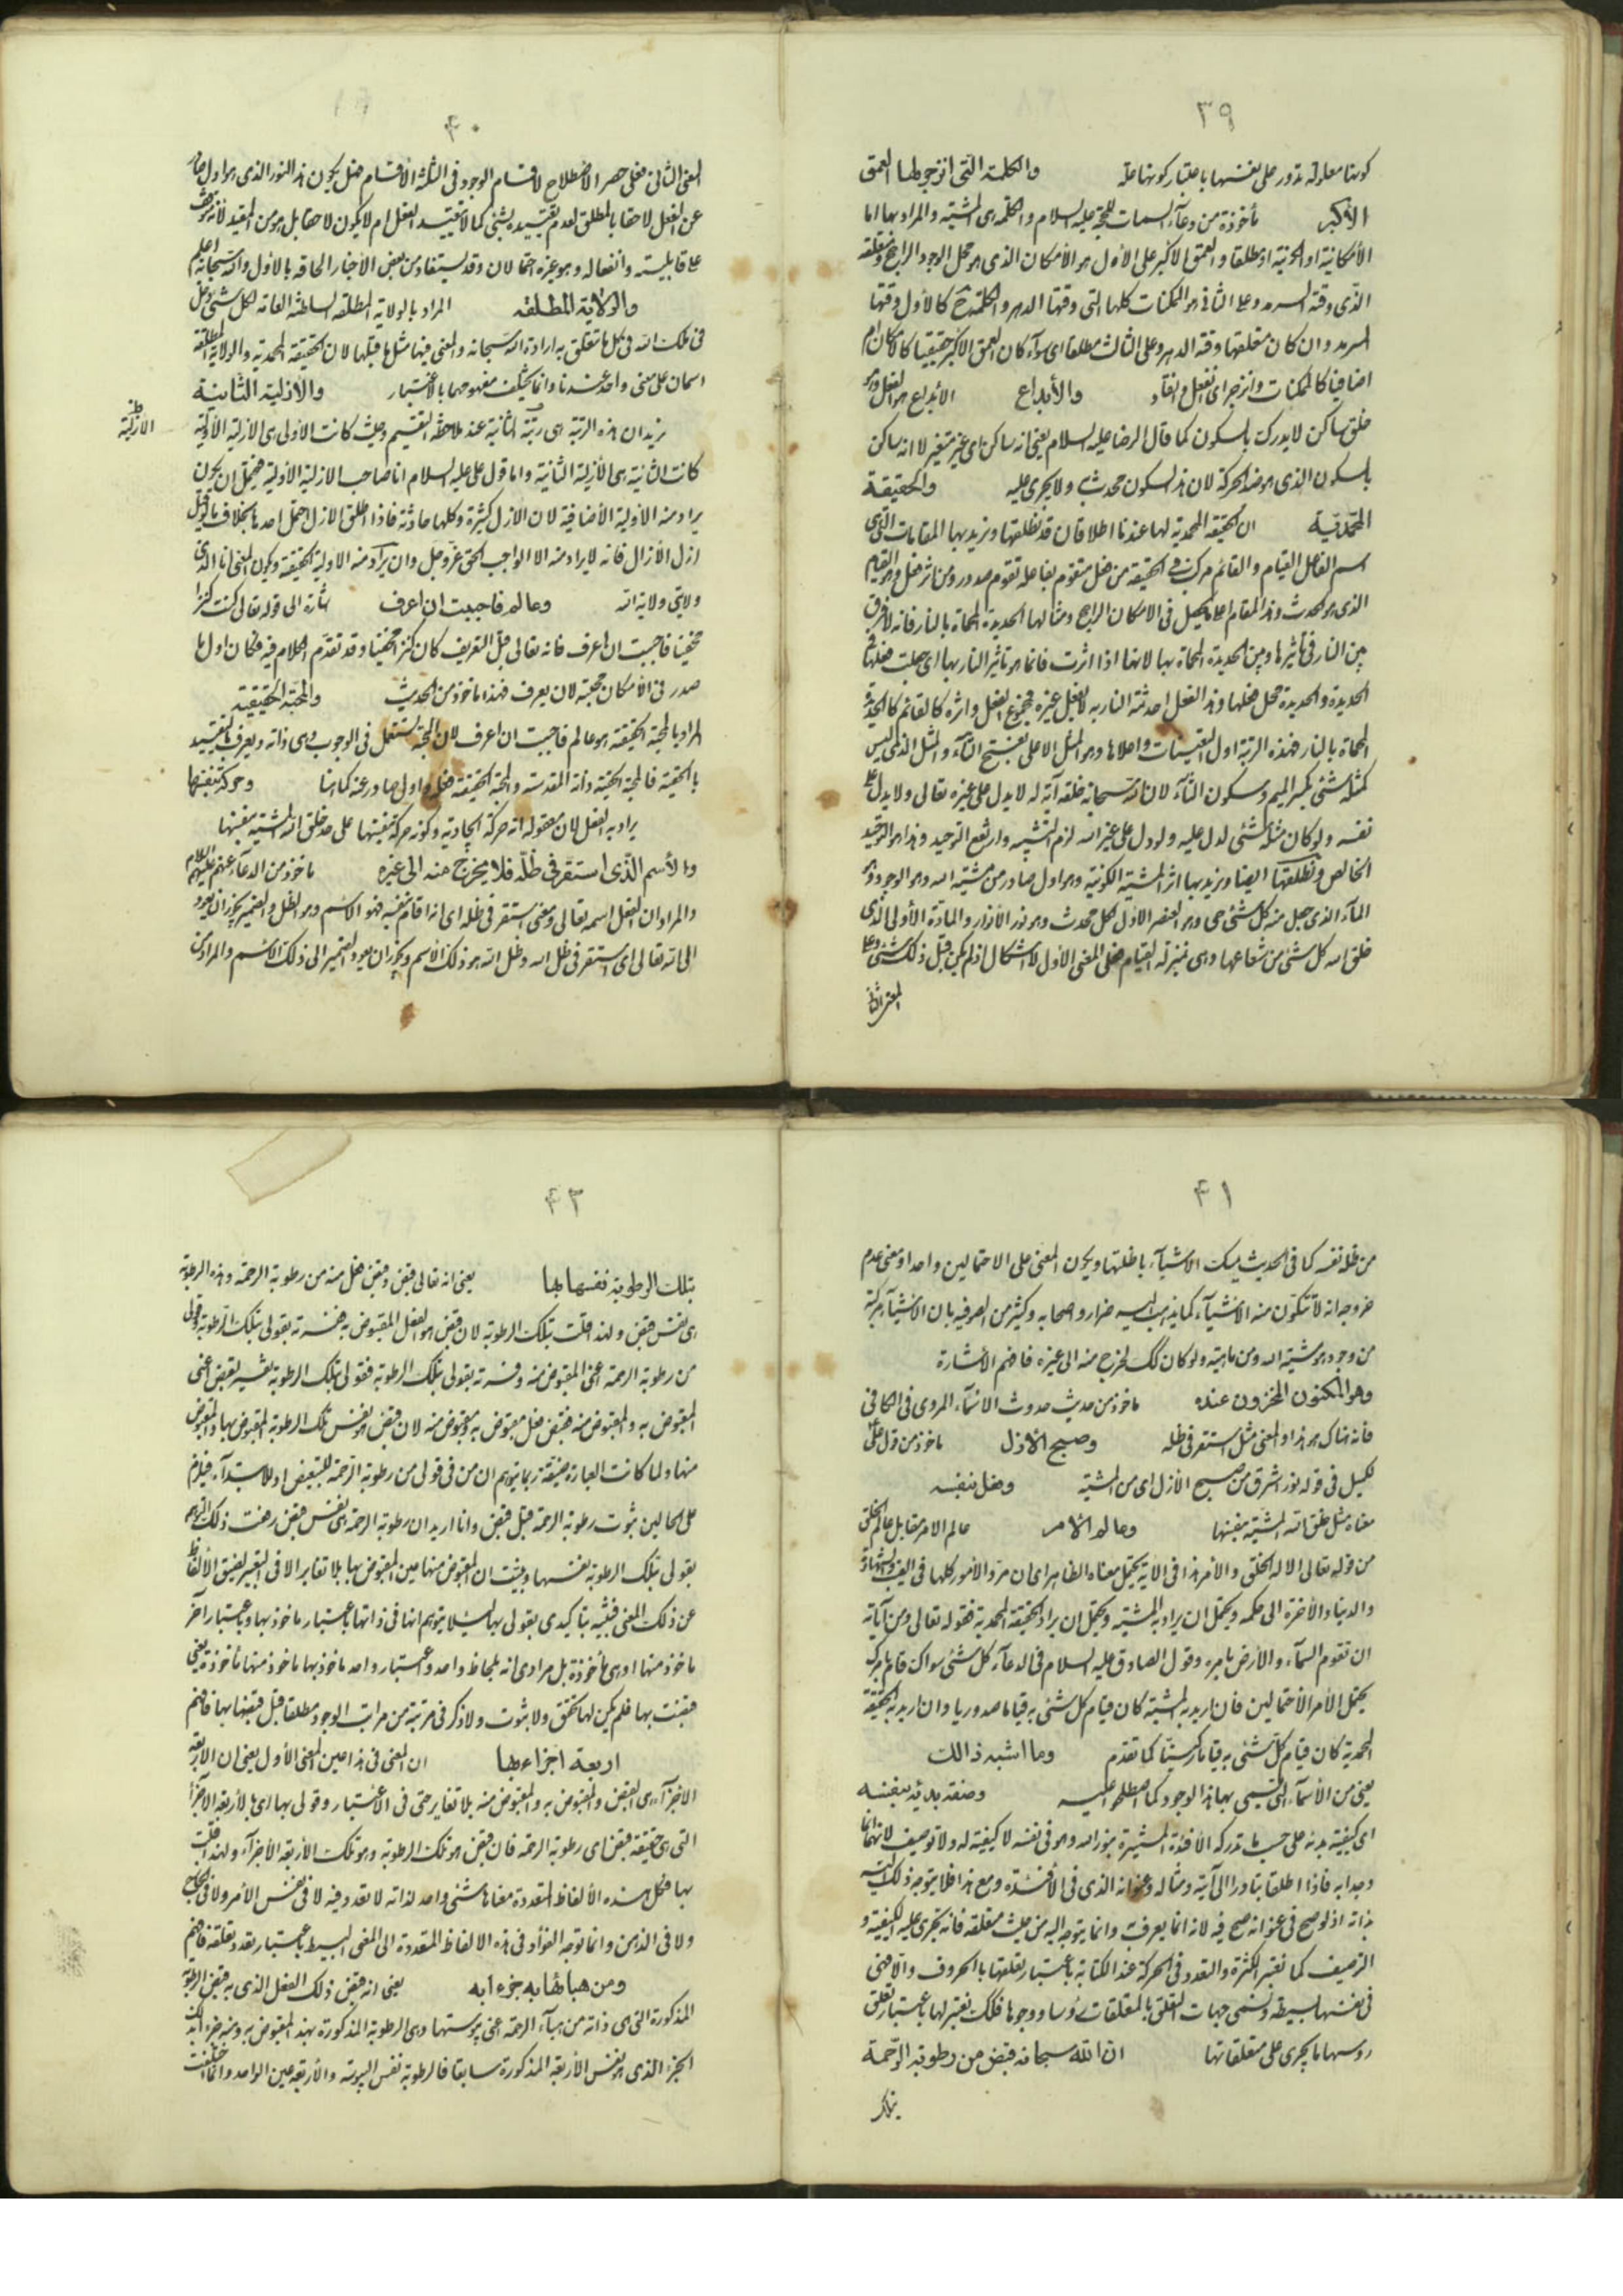 ٣٩
كونها معلولة تدور على نفسها باعتبار كونها علة والكلمة التي انزجر لها العمق
الأكبر مأخوذة من دعاء السمات للحجة عليه السلام والكلمة هي المشية والمراد بها اما
الأمكانية او الكونية او مطلقا والعمق الأكبر على الأول هو الأمكان الذي هو محل الوجود الراجح ومتعلقه
الذي وقته السرمد وعلى الثاني هو الممكنات كلها التي وقتها الدهر والكلمة ح كالأول وقتها
السرمد وان كان متعلقها وقته الدهر وعلى الثالث مطلقا اي سواء كان العمق الأكبر حقيقيا كالأمكان ام
اضافيا كالممكنات وانزجر اي انفعل وانقاد والأبداع الأبداع هو الفعل وهو
خلق ساكن لا يدرك بالسكون كما قال الرضا عليه السلام يعني انه ساكن اي غير متغير لا انه ساكن
بالسكون الذي هو ضد الحركة لان هذا السكون محدث به ولا يجري عليه والحقيقة
المحمدية ان الحقيقة المحمدية لها عندنا اطلاقان قد نطلقها ونريد بها المقامات التي هي
اسم الفاعل القيام والقائم مركب في الحقيقة من فعل متقوم بفاعله تقوم صدور ومن اثر فعل وهو القيام
الذي هو الحدث وهذا المقام اعلى ما يحصل في الامكان الراجح ومثالها الحديدة المحماة بالنار فانه لا فرق
بين النار في تأثيرها وبين الحديدة المحماة بها لانها اذا اثرت فانما هو تأثير النار بها اي جعلت فعلها في
الحديدة والحديدة محل فعلها وهذا الفعل احدثته النار به لا بفعل غيره فمجموع الفعل واثره كالقائم كالحديدة
المحماة بالنار فهذه الرتبة اول التعينات واعلاها وهو المثل الاعلى بفتح الثاء والمثل الذي ليس
كمثله شيء بكسر الميم وسكون الثاء لان الله سبحانه خلقه آية له لا يدل على غيره تعالى ولا يدل على
نفسه ولو كان مثله شيء لدل عليه ولو دل على غير الله لزم التشبيه وارتفع التوحيد وهذا هو التوحيد
الخالص ونطلقها ايضا ونريد بها اثر المشية الكونية وهو اول صادر من مشية الله وهو الوجود وهو
الماء الذي جعل منه كل شيء حي وهو العنصر الاول لكل محدث وهو نور الأنوار والمادة الأولى الذي
خلق الله كل شيء من شعاعها وهي بمنزلة القيام فعلى المعنى الأول لا اشكال اذ لم يكن قبل ذلك شيء وعلى
المعنى الثاني
٤٠
المعنى الثاني فعلى حصر الاصطلاح لاقسام الوجود في الثلثة الأقسام فهل يكون هذا النور الذي هو اول صادر
عن الفعل لاحقا بالمطلق لعدم تقييده بشيء كما لا تقييد الفعل ام لا يكون لاحقا بل هو من المقيد لأنه متوقف
على قابليته وانفعاله وهو غيره احتمالان وقد يستفاد من بعض الأخبار الحاقه بالأول والله سبحانه اعلم
والولاية المطلقة المراد بالولاية المطلقة السلطنة العامة لكل شيء دخل
في ملك الله في كل ما تعلق به ارادة الله سبحانه والمعنى فيها مثل ما قبلها لان الحقيقة المحمدية والولاية المطلقة
اسمان على معنى واحد عندنا وانما يختلف مفهومهما بالاعتبار والأزلية الثانية
نريد ان هذه الرتبة هي رتبة الثانية عند ملاحظة التقسيم وحيث كانت الاولى هي الازلية الأولية
ظ الازلية
كانت الثانية هي الأزلية الثانية واما قول علي عليه السلام انا صاحب الازلية الأولية فيحتمل ان يكون
يراد منه الأولية الأضافية لان الازل كثيرة وكلها حادثة فاذا اطلق الازل احتمل احدها بخلاف ما لو قيل
ازل الأزال فانه لا يراد منه الا الواجب الحق عز وجل وان يراد منه الاولية الحقيقة ويكون المعنى انا الذي
ولايتي ولاية الله وعالم فاحببت ان اعرف اشارة الى قوله تعالى كنت كنزا
مخفيا فاحببت ان اعرف فانه تعالى قبل التعريف كان كنزا مخفيا وقد تقدم الكلام فيه فكان اول ما
صدر في الأمكان محبته لان يعرف فهذا ماخوذ من الحديث والمحبة الحقيقية
المراد بالمحبة الحقيقية هو عالم فاحببت ان اعرف لان المحبة تستعمل في الوجوب وهي ذاته ويعرف بالتقييد
بالحقية فالمحبة الحقية ذاته المقدسة والمحبة الحقيقية فعله واول صادر عنه كما هنا وحركة بنفسها
يراد به الفعل لان معقوله انه حركة ايجادية وكونه حركة بنفسها على حد خلق الله المشية بنفسها
والأسم الذي استقر في ظله فلا يخرج منه الى غيره ماخوذ من الدعاء عنهم عليهم السلام
والمراد ان الفعل اسمه تعالى ومعنى استقر في ظله اي انه اقامه بنفسه فهو الأسم وهو الظل والضمير يجوز ان يعود
الى الله تعالى اي استقر في ظل الله وظل الله هو ذلك الأسم ويجوز ان يعود الضمير الى ذلك الاسم والمراد من
٤١
من ظله نفسه كما في الحديث يمسك الاشياء باظلتها ويكون المعنى على الاحتمالين واحدا ومعنى عدم
خروجه انه لا تتكون منه الأشياء كما يذهب اليه ضرار واصحابه وكثير من الصوفية بان الأشياء مركبة
من وجود هو مشية الله ومن ماهية ولو كان كك لخرج منه الى غيره فافهم الأشارة
وهو المكنون المخزون عنده ماخوذ من حديث حدوث الاسماء المروي في الكافي
فانه هناك هو هذا والمعنى مثل استقر في ظله وصبح الازل ماخوذ من قول علي
لكميل في قوله نور اشرق من صبح الأزل اي من المشية وفعل بنفسه
معناه مثل خلق الله المشية بنفسها وعالم الأمر عالم الامر مقابل عالم الخلق
من قوله تعالى الا له الخلق والأمر هذا في الآية يحتمل معناه الظاهر اي ان مرد الأمور كلها في الغيب والشهادة
والدنيا والأخرة الى حكمه ويحتمل ان يراد به المشية ويحتمل ان يراد الحقيقة المحمدية فقوله تعالى ومن آياته
ان تقوم السماء والأرض بامره وقول الصادق عليه السلام في الدعاء كل شيء سواك قام بامرك
يحتمل الأمر الأحتمالين فأن اريد به المشية كان قيام كل شيء به قياما صدوريا وان اريد به الحقيقة
المحمدية كان قيام كل شيء به قياما ركنيا كما تقدم وما اشبه ذالك
يعني من الأسماء التي يسمى بها هذا الوجود كما اصطلحوا عليه وصفة بدئه بنفسه
اي كيفية بدئه على حسب ما تدركه الأفئدة المستنيرة بنور الله وهو في نفسه لا كيفية له ولا توصيف لانهما انما
وجدا به فاذا اطلقا تبادرا الى آيته ومثاله وعنوانه الذي في الأفئدة ومع هذا فلا يتوجه ذلك اليه
بذاته اذ لو صح في عنوانه صح فيه لانه انما يعرف به وانما يتوجه اليه من حيث متعلقه فانه تجري عليه الكيفية و
التوصيف كما تعتبر الكثرة والتعدد في الحركة عند الكتابة باعتبار تعلقها بالحروف والا فهي
في نفسها بسيطة وتسمى جهات التعلق بالمتعلقات رؤسا ووجوها فلك تعتبر لها باعتبار تعلق
رؤسها ما يجري على متعلقاتها ان الله سبحانه قبض من رطوبة الرحمة
بتلك
٤٢
بتلك الرطوبة نفسها بها يعني انه تعالى قبض وقبض فعل منه من رطوبة الرحمة وهذه الرطوبة
هي نفس قبض ولهذا قلت بتلك الرطوبة لان قبض هو الفعل المقبوض به ففسرته بقولي بتلك الرطوبة وقولي
من رطوبة الرحمة اعني المقبوض منه وفسرته بقولي بتلك الرطوبة فقولي بتلك الرطوبة تفسير لقبض اعني
المقبوض به والمقبوض منه فقبض فعل مقبوض به ومقبوض منه لان قبض هو نفس تلك الرطوبة المقبوض بها والمقبوض
منها ولما كانت العبارة ضيقة ربما يتوهم ان من في قولي من رطوبة الرحمة للتبعيض او للابتداء فيلزم
على الحالين ثبوت رطوبة الرحمة قبل قبض وانا اريد ان رطوبة الرحمة هي نفس قبض رفعت ذلك التوهم
بقولي بتلك الرطوبة نفسها وبينت ان المقبوض منها عين المقبوض بها بلا تغاير الا في التعبير لضيق الألفاظ
عن ذلك المعنى فبينته بتأكيدي بقولي بها لئلا يتوهم انها في ذاتها باعتبار ماخوذ بها وباعتبار آخر
ماخوذ منها او هي مأخوذة بل مرادي انه بلحاظ واحد واعتبار واحد ماخوذ بها ماخوذ منها مأخوذة يعني
قبضت بها فلم يكن لها تحقق ولا ثبوت ولا ذكر في مرتبة من مراتب الوجود مطلقا قبل قبضها بها فافهم
اربعة اجزاء بها ان المعنى في هذا عين المعنى الأول يعني ان الأربعة
الاجزاء هي القبض والمقبوض به والمقبوض منه بلا تغاير حتى في الأعتبار وقولي بها اي بالأربعة الأجزاء
التي هي حقيقة قبض اي رطوبة الرحمة فان قبض هو تلك الرطوبة وهو تلك الأربعة الأجزاء ولهذا قلت
بها فكل هذه الألفاظ المتعددة معناها شيء واحد لذاته لا تعدد فيه لا في نفس الأمر ولا في الخارج
ولا في الذهن وانما توجه الفؤاد في هذه الالفاظ المتعددة الى المعنى البسيط باعتبار تعدد تعلقه فافهم
ومن هبائها به جزءا به يعني انه قبض ذلك الفعل الذي به قبض الرطوبة
المذكورة التي هي ذاته من هباء الرحمة اعني يبوستها وهي الرطوبة المذكورة بهذا المقبوض به ومنه جزءا به
الجزء الذي هو نفس الأربعة المذكورة سابقا فالرطوبة نفس اليبوسة والأربعة عين الواحد وانما اختلفت